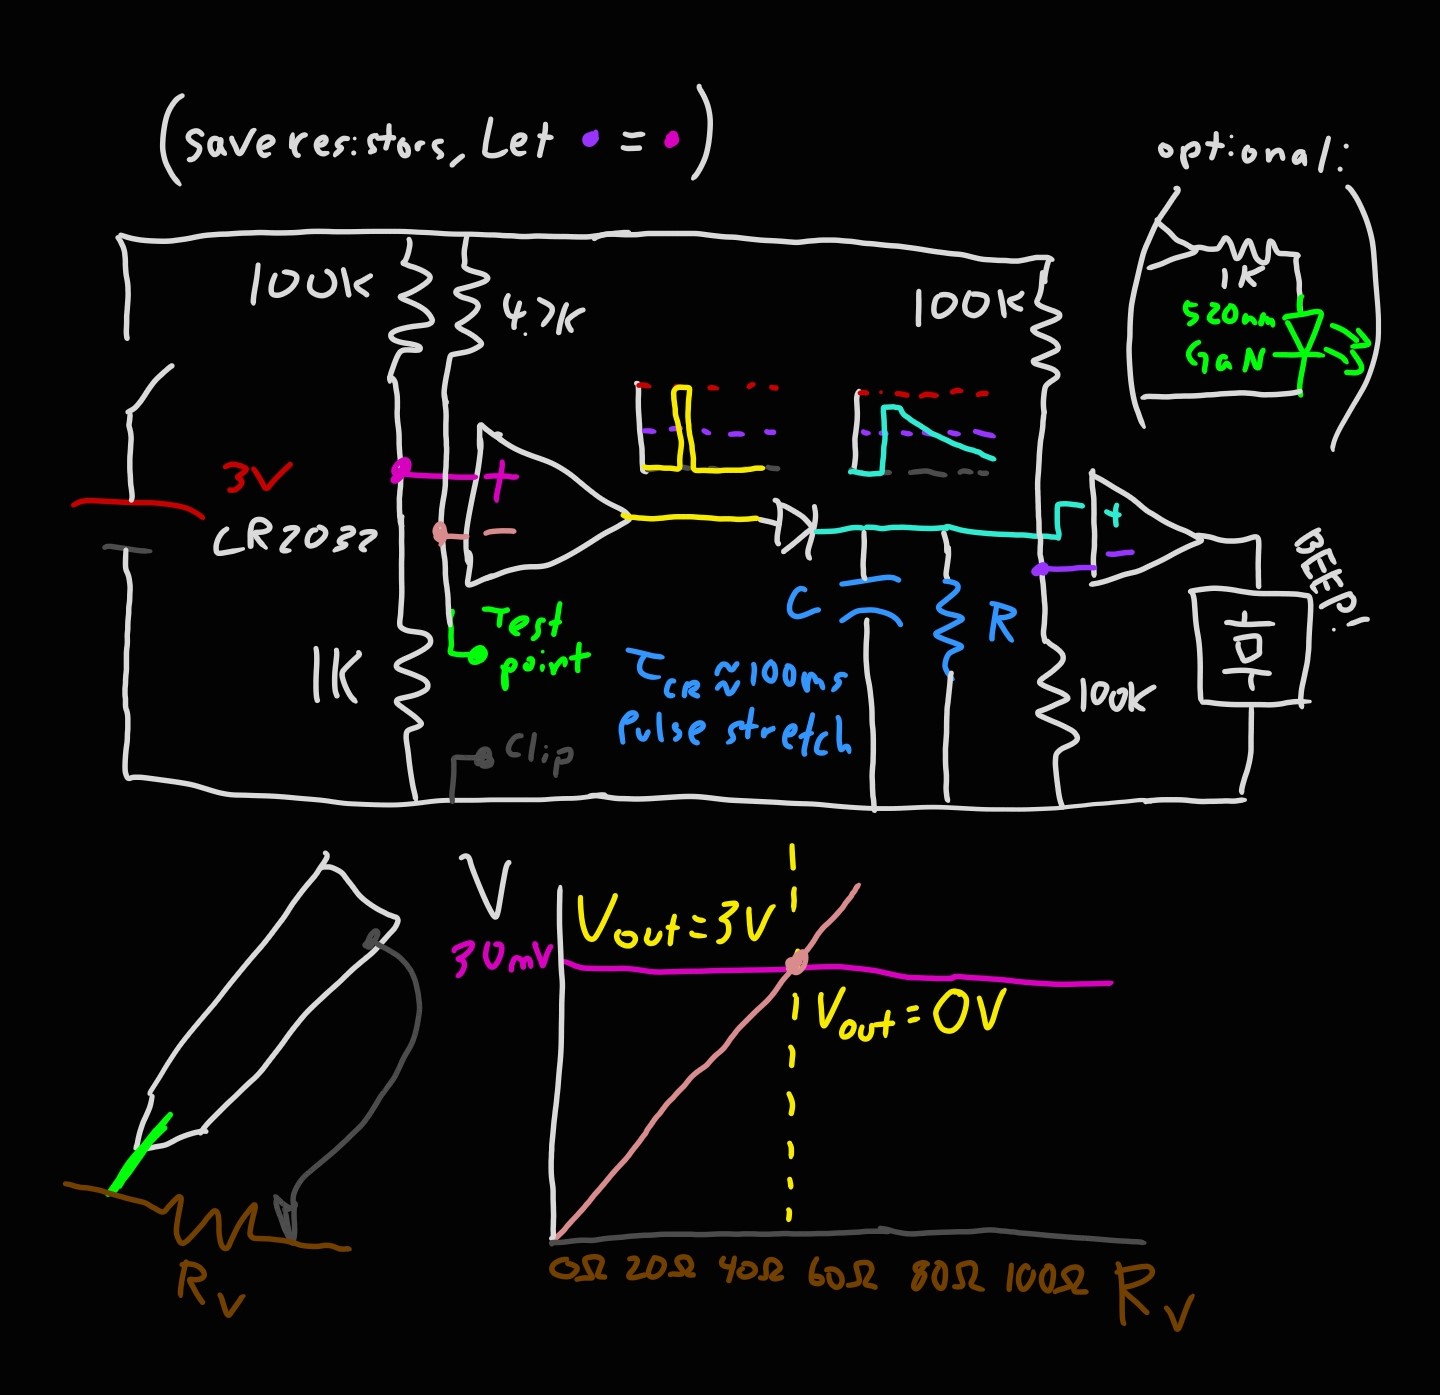 (Save resistors, Let • = •)
optional:
1K
520nm
GaN
100K
4.7K
100K
3V
CR2032
+
−
+
−
BEEP!
Test
point
C
R
1K
τCR ≈ 100ms
Pulse stretch
100K
Clip
V
Vout = 3V
30mV
Vout = 0V
0Ω 20Ω 40Ω 60Ω 80Ω 100Ω RV
RV